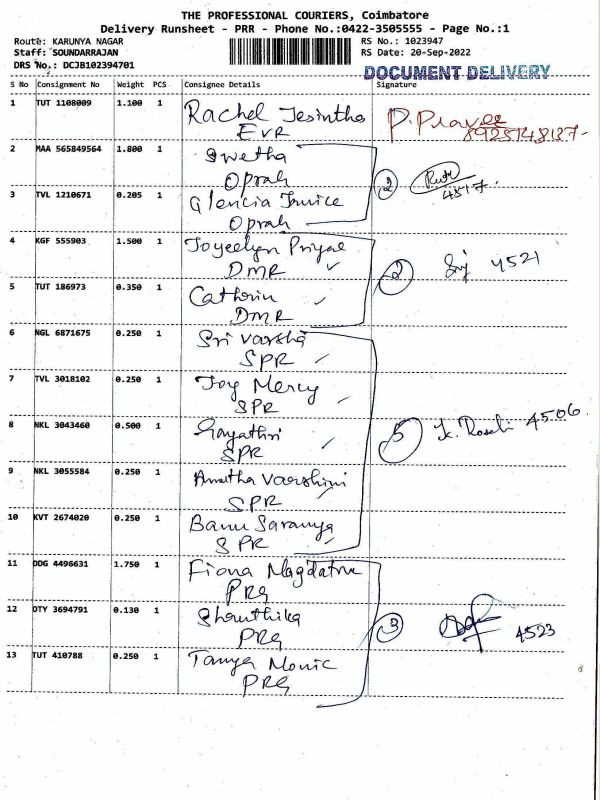 THE PROFESSIONAL COURIERS, Coimbatore
Delivery Runsheet - PRR - Phone No.:0422-3505555 - Page No.:1
Route: KARUNYA NAGAR RS No.: 1023947
Staff: SOUNDARRAJAN RS Date: 20-Sep-2022
DRS No.: DCJB102394701 DOCUMENT DELIVERY
S No Consignment No Weight PCS Consignee Details Signature
1 TUT 1108009 1.100 1 Rachel Jesintha
EVR
2 MAA 565849564 1.800 1 Swetha
Oprah
3 TVL 1210671 0.205 1 Glencia
Oprah
2
4517
4 KGF 555903 1.500 1
DMR
2 4521
5 TUT 186973 0.350 1 Cathrin
DMR
6 NGL 6871675 0.250 1 Sri varsha
SPR
7 TVL 3018102 0.250 1 Joy Mercy
SPR
8 NKL 3043460 0.500 1 Gayathri
SPR
5 4506
9 NKL 3055584 0.250 1 Amutha varshini
SPR
10 KVT 2674020 0.250 1 Banu Saranya
SPR
11 DDG 4496631 1.750 1 Fiona
PRG
12 OTY 3694791 0.130 1 Shanthika
PRG
3 4523
13 TUT 410788 0.250 1 Tanya Monic
PRG